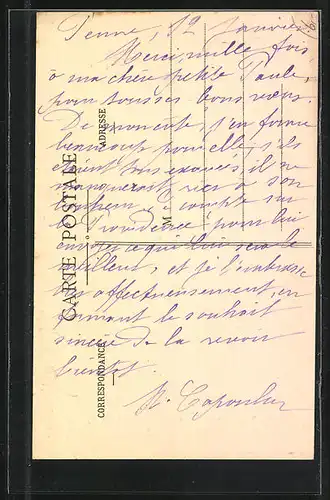 12 Janvier
Merci, mille fois
à ma chère petite Paule,
pour tous ses bons vœux.
De mon côté, j'en forme
beaucoup pour elle, s'ils
étaient tous exaucés, il ne
manquerait rien à son
bonheur. compte sur
la Providence pour lui
envoyer ce que sera le
meilleur, et je l'embrasse
affectueusement, en
formant le souhait
sincère de la revoir
bientôt.
M.
CARTE POSTALE
CORRESPONDANCE
ADRESSE
M